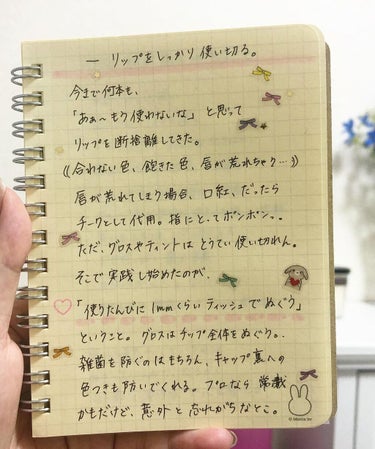 一 リップをしっかり使い切る。
今まで何本も、
「あぁ〜もう使わないな」と思って
リップを断捨離してきた。
((合わない色、飽きた色、唇が荒れちゃう…))
唇が荒れてしまう場合、口紅、だったら
チークとして代用。指にとってポンポン..
ただ、グロスやティントはとうてい使い切れん。
そこで実践し始めたのが、
「使うたびに1mmくらいティッシュでぬぐう」
ということ。グロスはチップ全体をぬぐう。.
雑菌を防ぐのはもちろん、キャップ裏への
色つきも防いでくれる。プロなら常識
かもだけど、意外と忘れがちなとこ。